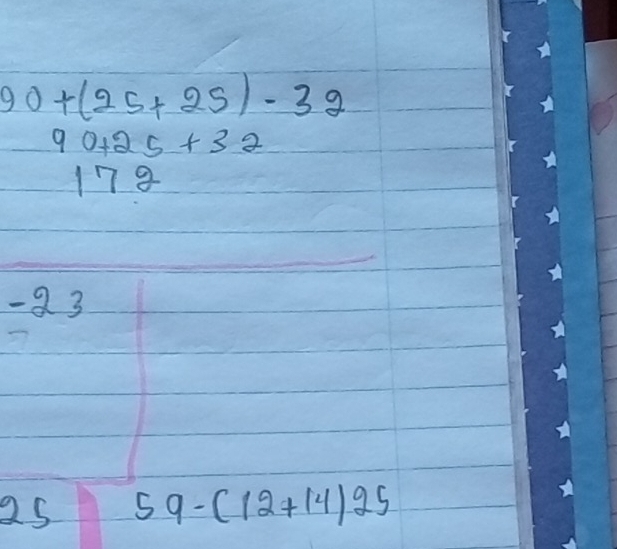 90+(25+25)-32
90+25+32
172
-23
25
59-(12+14)25